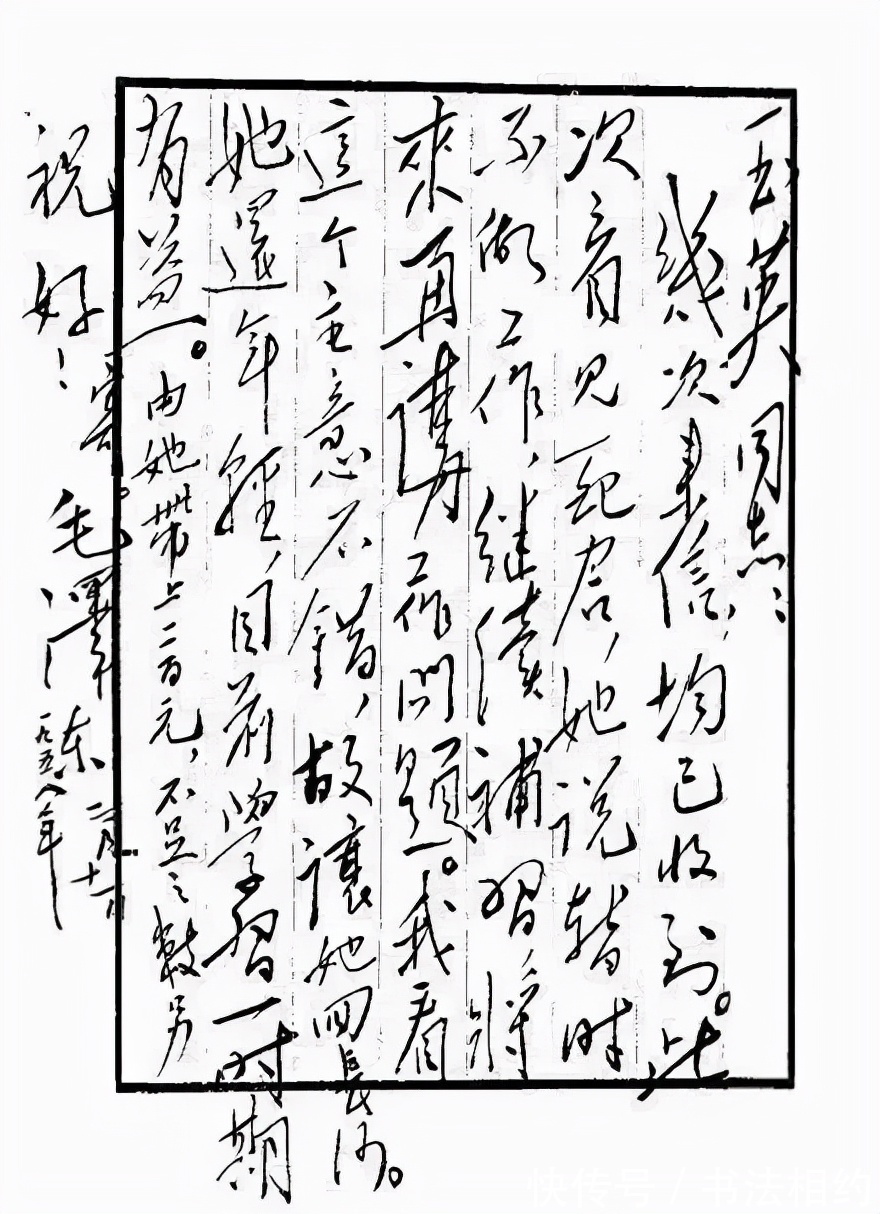 玉英同志：
幾次来信，均已收到。此
次看见文君，她说暂时
不做工作，继续補習，将
來再講工作问题。我看
这个主意不错，故讓她回長沙。
她還年輕，目前学習一时期
有益。由她带上二百元，不足之数另
寄。
祝好！
毛澤东
二月十一日
一九五八年
快传号 / 书法相约